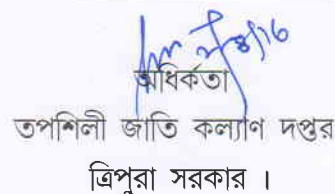 অধিকর্তা
তপশিলী জাতি কল্যাণ দপ্তর
ত্রিপুরা সরকার ।